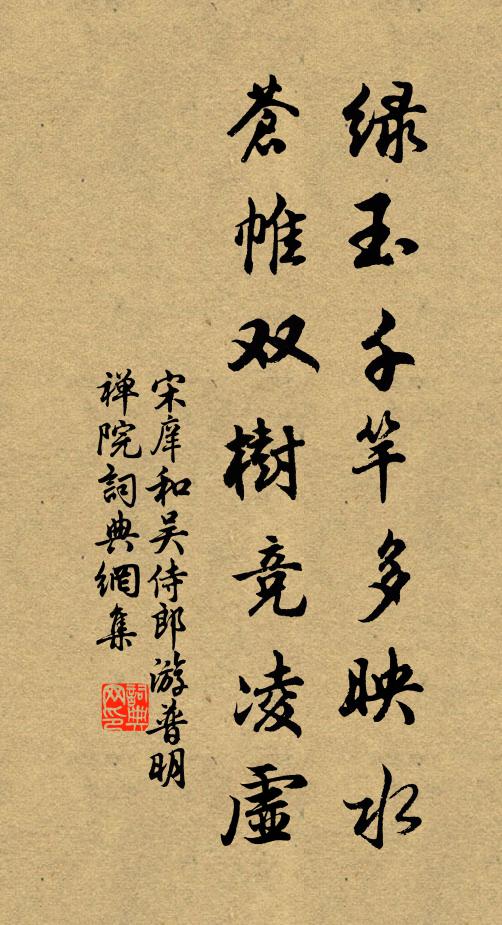 绿玉千竿多映水
苍帷双樹竞凌虚
宋庠和吴侍郎游普明
禅院詞典網集
詞典
网印